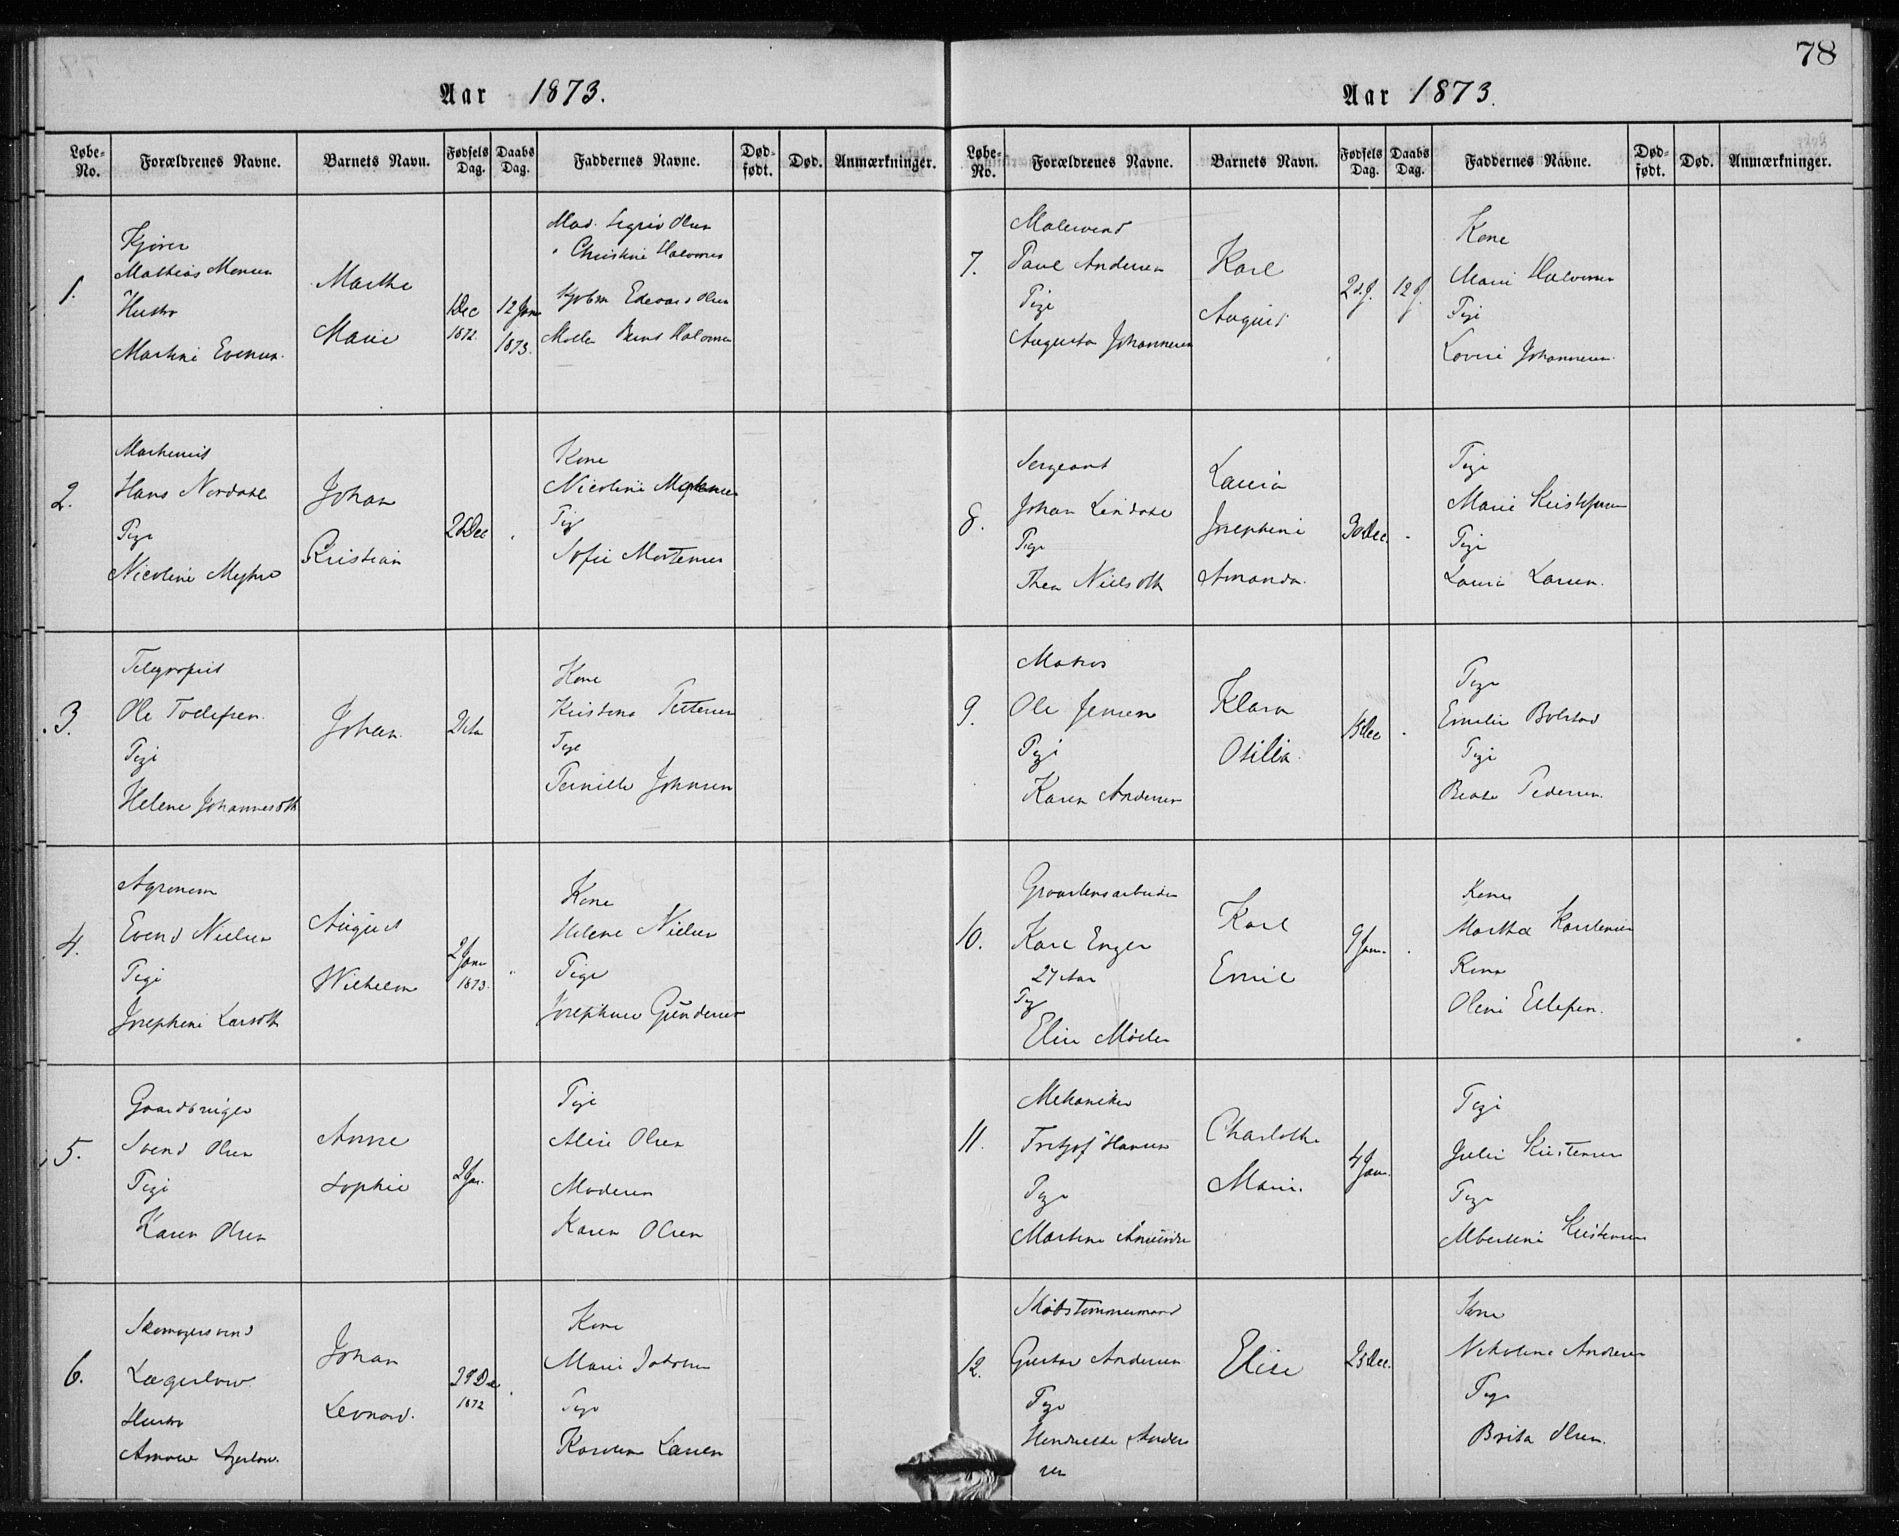 78
Aar 1873.
Løbe-No. Forældrenes Navne. Barnets Navn. Fødsels Dag. Daabs Dag. Faddernes Navne. Død-født. Død. Anmærkninger.
1.
Kjører
Mathias Monsen
Hustro
Martine Evensen
Marthe
Marie
1 Dec
1872.
12 Jan
1873.
Mad. Sigrid Olsen
" Christine Halvorsen
Edevard Olsen
Halvorsen
2.
Maskinist
Hans Nordahl
Pige
Nicoline Myhre
Johan
Kristian
26 Dec
Kone
Nicoline
Pige
Sofie Mortensen
3.
Telegrafist
Ole Tollefsen
Pige
Helene Johannesdtt
Johan
Kone
Kristina Pettersen
Pige
Pernille Johnsen
4.
Agronom
Evend Nielsen
Pige
Josephine Larsdtt
August
Wilhelm
2 Jan
1873.
Kone
Helene Nielsen
Pige
Josephine Gundersen
5.
Gaardbruger
Svend Olsen
Pige
Karen Olsen
Anne
Sophie
2 Jan.
Pige
Alice Olsen
Moderen
Karen Olsen
6.
Skomagersvend
Lagerlow
Hustro
Johan
Leonard.
29 De
1872
Kone
Marie
Pige
Karoline Larsen
Aar 1873.
Løbe-No. Forældrenes Navne. Barnets Navn. Fødsels Dag. Daabs Dag. Faddernes Navne. Død-født. Død. Anmærkninger.
7.
Malersvend
Paul Andersen
Pige
Augusta Johannesen
Karl
August
2 J.
12 J.
Kone
Marie Halvorsen
Pige
Lovise Johannesen
8.
Sergeant
Johan Lindahl
Pige
Thea Nielsdtt
Laura
Josephine
Amanda.
30 Dec.
Pige
Marie Kristofersen
Pige
Laura Larsen.
9.
Matros
Ole Jensen
Pige
Karen Andersen
Klara
Otilia.
15 Dec
Pige
Emilie Bolstad
Pige
Beate Pedersen.
10.
Graastensarbeider
Karl Enger
27 Aar
Pige
Elise Møller
Karl
Emil
9 Jan.
Kone
Martha Karlsen
Kone
Oline Ellefsen.
11.
Mekaniker
Fritjof Hansen
Pige
Martine
Charlothe
Marie.
4 Jan.
Pige
Julie Kristensen
Pige
Albertine Kristensen
12.
Skibstømmermand
Gustav Andersen
Pige
Henriette Anders
sen
Elise
23 Dec.
Kone
Nikoline Andersen
Pige
Brita Olsen.